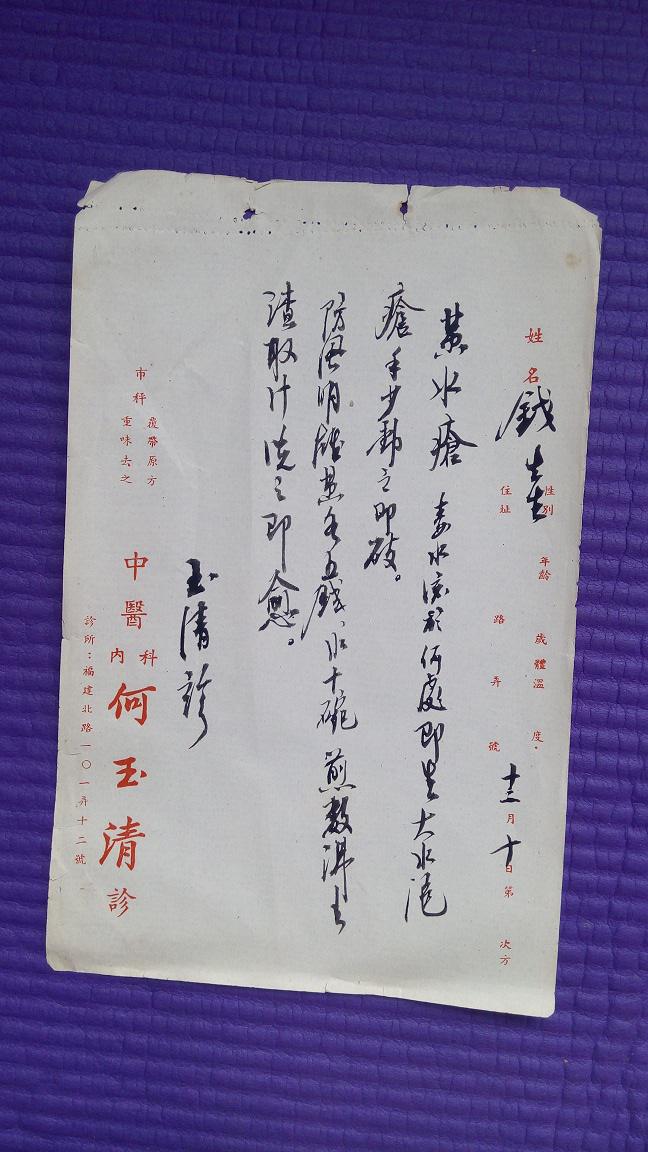 姓名 錢先生 性別 年齡 歲 體溫 度
住址 路 弄 號 十二月十日 第 次方
黃水瘡 毒水流於何處即生大水泡
瘡手少動之即破。
防風明雄黃各五錢、水十碗煎數沸去
渣取汁洗之即愈。
玉清診
市秤
覆帶原方
重味去之
中醫內科 何玉清 診
診所：福建北路一〇一弄十二號